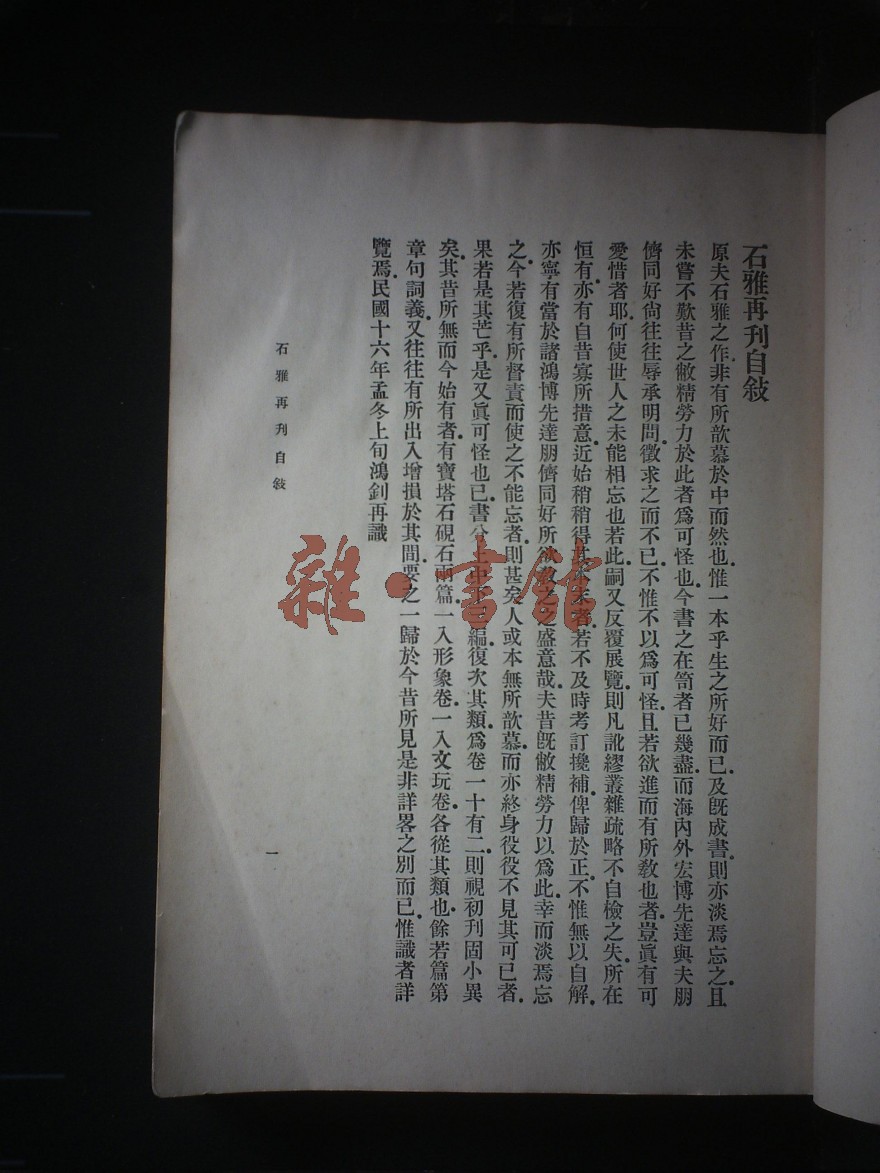 石雅再刊自敍
原夫石雅之作.非有所歆慕於中而然也.惟一本乎生之所好而已.及旣成書.則亦淡焉忘之.且
未嘗不歎昔之敝精勞力於此者爲可怪也.今書之在笥者已幾盡.而海內外宏博先達與夫朋
儕同好.尙往往辱承明問.徵求之而不已.不惟不以爲可怪.且若欲進而有所敎也者.豈眞有可
愛惜者耶.何使世人之未能相忘也若此.嗣又反覆展覽.則凡訛繆叢雜疏略不自檢之失.所在
恒有.亦有自昔寡所措意.近始稍稍得其 者.若不及時考訂攙補.俾歸於正.不惟無以自解.
亦寧有當於諸鴻博先達朋儕同好所欲 之盛意哉.夫昔旣敝精勞力以爲此.幸而淡焉忘
之.今若復有所督責而使之不能忘者.則甚矣人或本無所歆慕.而亦終身役役不見其可已者.
果若是其芒乎.是又眞可怪也已.書分上中 編.復次其類.爲卷一十有二.則視初刊固小異
矣.其昔所無而今始有者.有寶塔石硯石兩篇.一入形象卷.一入文玩卷.各從其類也.餘若篇第
章句詞義.又往往有所出入增損於其間.要之一歸於今昔所見是非詳畧之別而已.惟識者詳
覽焉.民國十六年孟冬上旬鴻釗再識
石雅再刊自敍
一
雜·書館